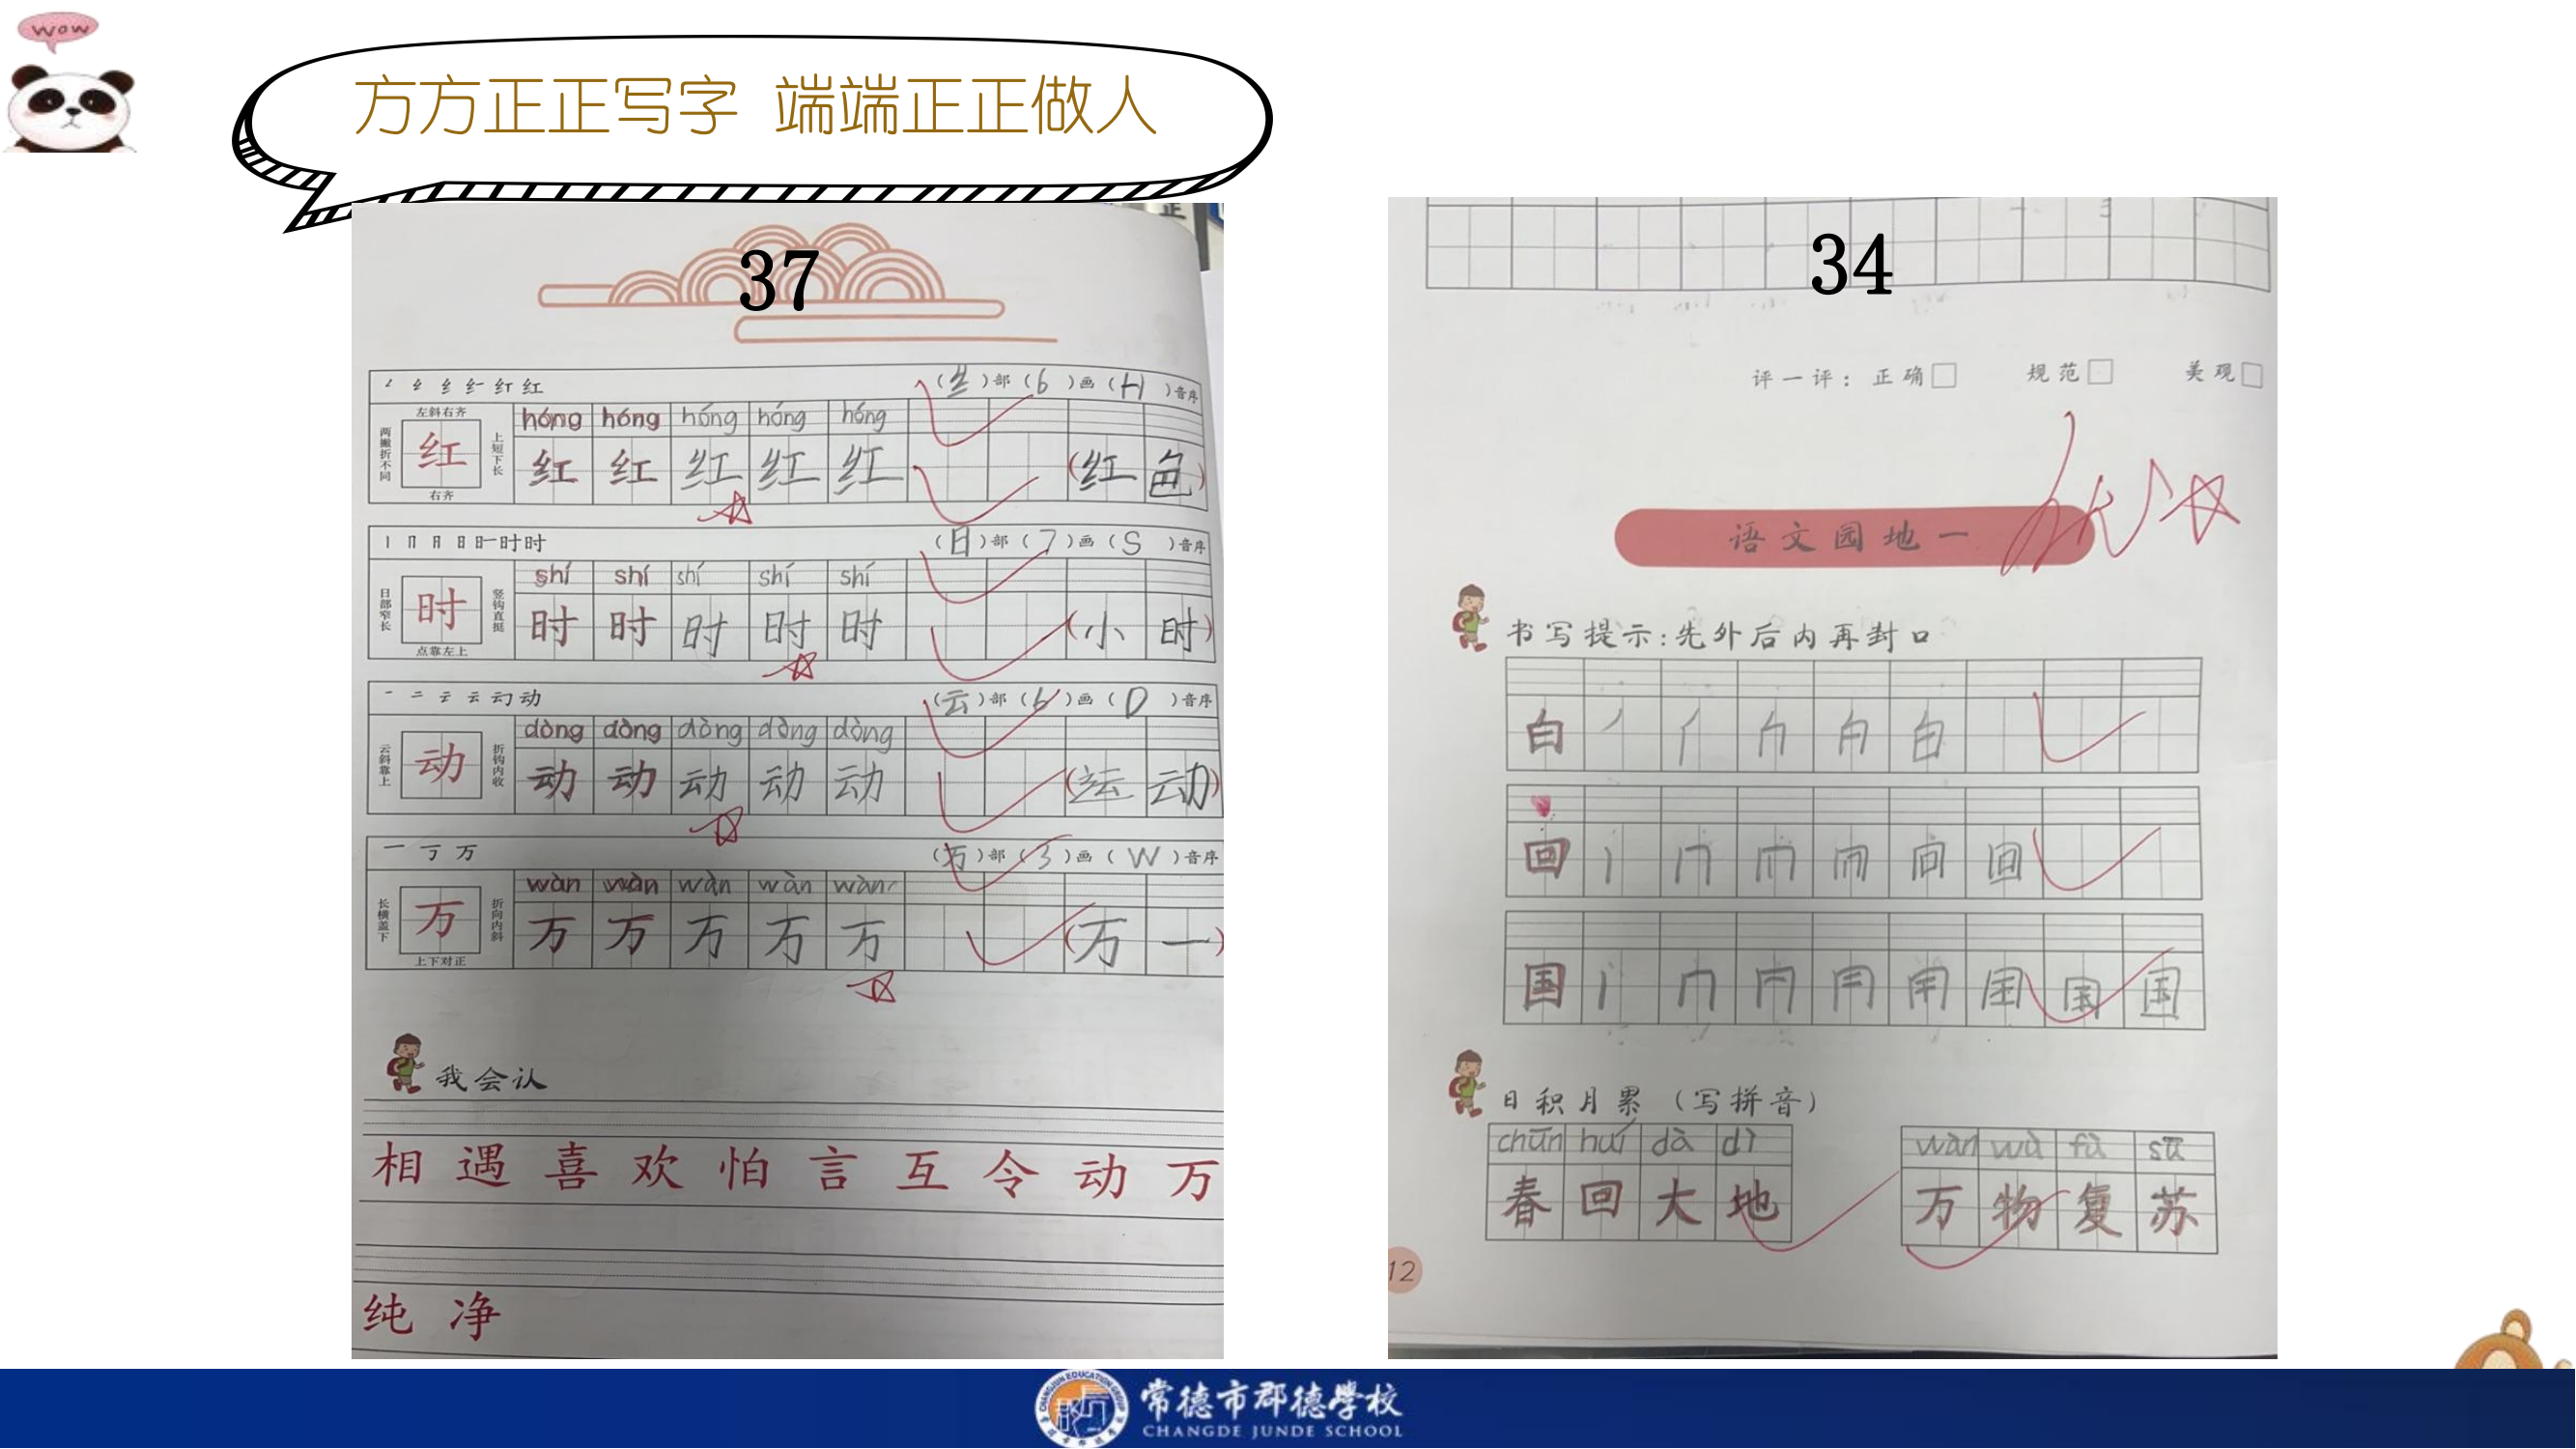 wow
方方正正写字 端端正正做人
37
红 (纟)部(6)画(H)音序
左斜右齐
两撇折不同
上短下长
右齐
红
hóng hóng hóng hóng hóng
红 红 红 红 红 (红色)
时时 (日)部(7)画(S)音序
日部窄长
竖钩直挺
点靠左上
时
shí shí shí shí shí
时 时 时 时 时 (小时)
一 二 云 云 动 (云)部(6)画(D)音序
云斜靠上
折钩内收
动
dòng dòng dòng dòng dòng
动 动 动 动 动 (运动)
一 丂 万 (万)部(3)画(W)音序
长横盖下
折向内斜
上下对正
万
wàn wàn wàn wàn wàn
万 万 万 万 万 (万一)
我会认
相 遇 喜 欢 怕 言 互 令 动 万
纯 净
34
评一评：正确□ 规范□ 美观□
优
语文园地一
书写提示:先外后内再封口
白 白
回 回
国 国
日积月累（写拼音）
chūn huí dà dì wàn wù fù sū
春回大地 万物复苏
12
常德市郡德學校
CHANGDE JUNDE SCHOOL
CHANGJUN EDUCATION GROUP